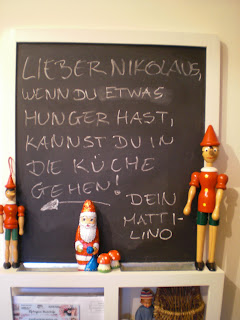 LIEBER NIKOLAUS,
WENN DU ETWAS
HUNGER HAST,
KANNST DU IN
DIE KÜCHE
GEHEN!
DEIN
MATTI-
LINO